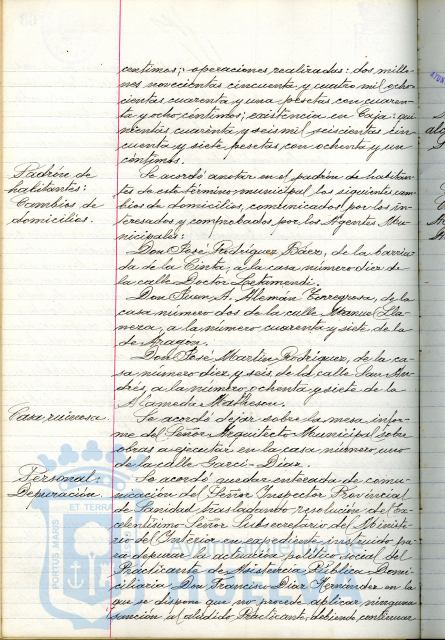 centimos; operaciones realizadas: dos millo-
nes novecientas cincuenta y cuatro mil ocho-
cientas cuarenta y una pesetas con cuaren-
ta y ocho céntimos; existencia en Caja: qui-
nientas cuarenta y seis mil seiscientas cin-
cuenta y siete pesetas con ochenta y un
céntimos.
Padrón de
habitantes:
Cambios de
domicilios.
Se acordó anotar en el padrón de habitan-
tes de este término municipal los siguientes cam-
bios de domicilios, comunicados por los in-
teresados y comprobados por los Agentes Mu-
nicipales:
Don José Rodríguez Báez, de la barria-
da de la Cinta, a la casa número diez de
la calle Doctor Letamendi.
Don Juan A. Alemán Torregrosa, de la
casa número dos de la calle Manuel Lla-
nera, a la número cuarenta y siete de la
de Aragon.
Don José Martin Rodríguez, de la ca-
sa número diez y seis de la calle San An-
drés, a la número ochenta y siete de la
Alameda Matheson.
Casa ruinosa.
Se acordó dejar sobre la mesa infor-
me del Señor Arquitecto Municipal sobre
obras a ejecutar en la casa número uno
de la calle Garci-Diaz.
Personal:
Depuración.
Se acordó quedar enterada de comu-
nicación del Señor Inspector Provincial
de Sanidad trasladando resolución del Ex-
celentísimo Señor Subsecretario del Ministe-
rio del Interior en expediente instruido pa-
ra depurar la actuación político social del
Practicante de Asistencia Pública Domi-
ciliaria Don Francisco Diaz Hernández en la
que se dispone que no procede aplicar ninguna
sanción al aludido Practicante, debiendo continuar
PORTUS MARIS
ET TERRA